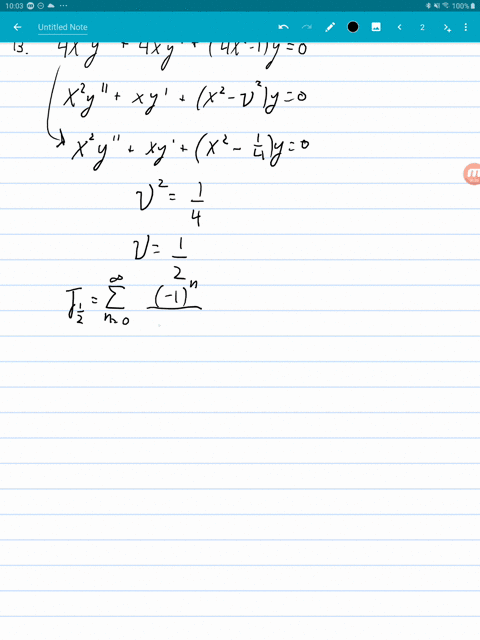 10:03 100%
Untitled Note 2
13. 4x²y'' + 4xy' + (4x²-1)y=0
x²y'' + xy' + (x² - ν²)y=0
x²y'' + xy' + (x² - 1/4)y=0
ν² = 1/4
ν = 1/2
J_{1/2} = ∑_{n=0}^{∞} (-1)^n